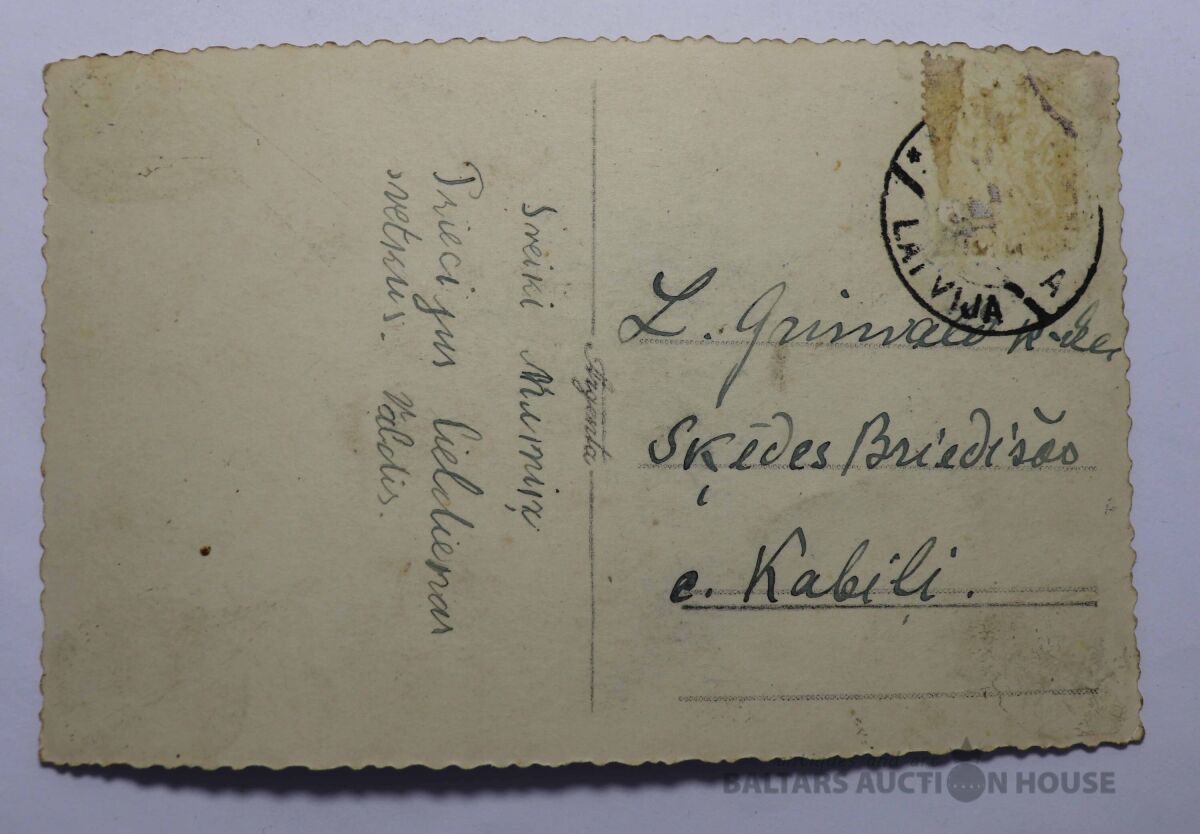 Sveiki Mumiņ
Priecijus lieldienas
svetkus. Valdis.
Argenta
LATVIJA
A
L. Grinvald k-dze
Sķēdes Briedišos
c. Kabiļi.
BALTARS AUCTION HOUSE